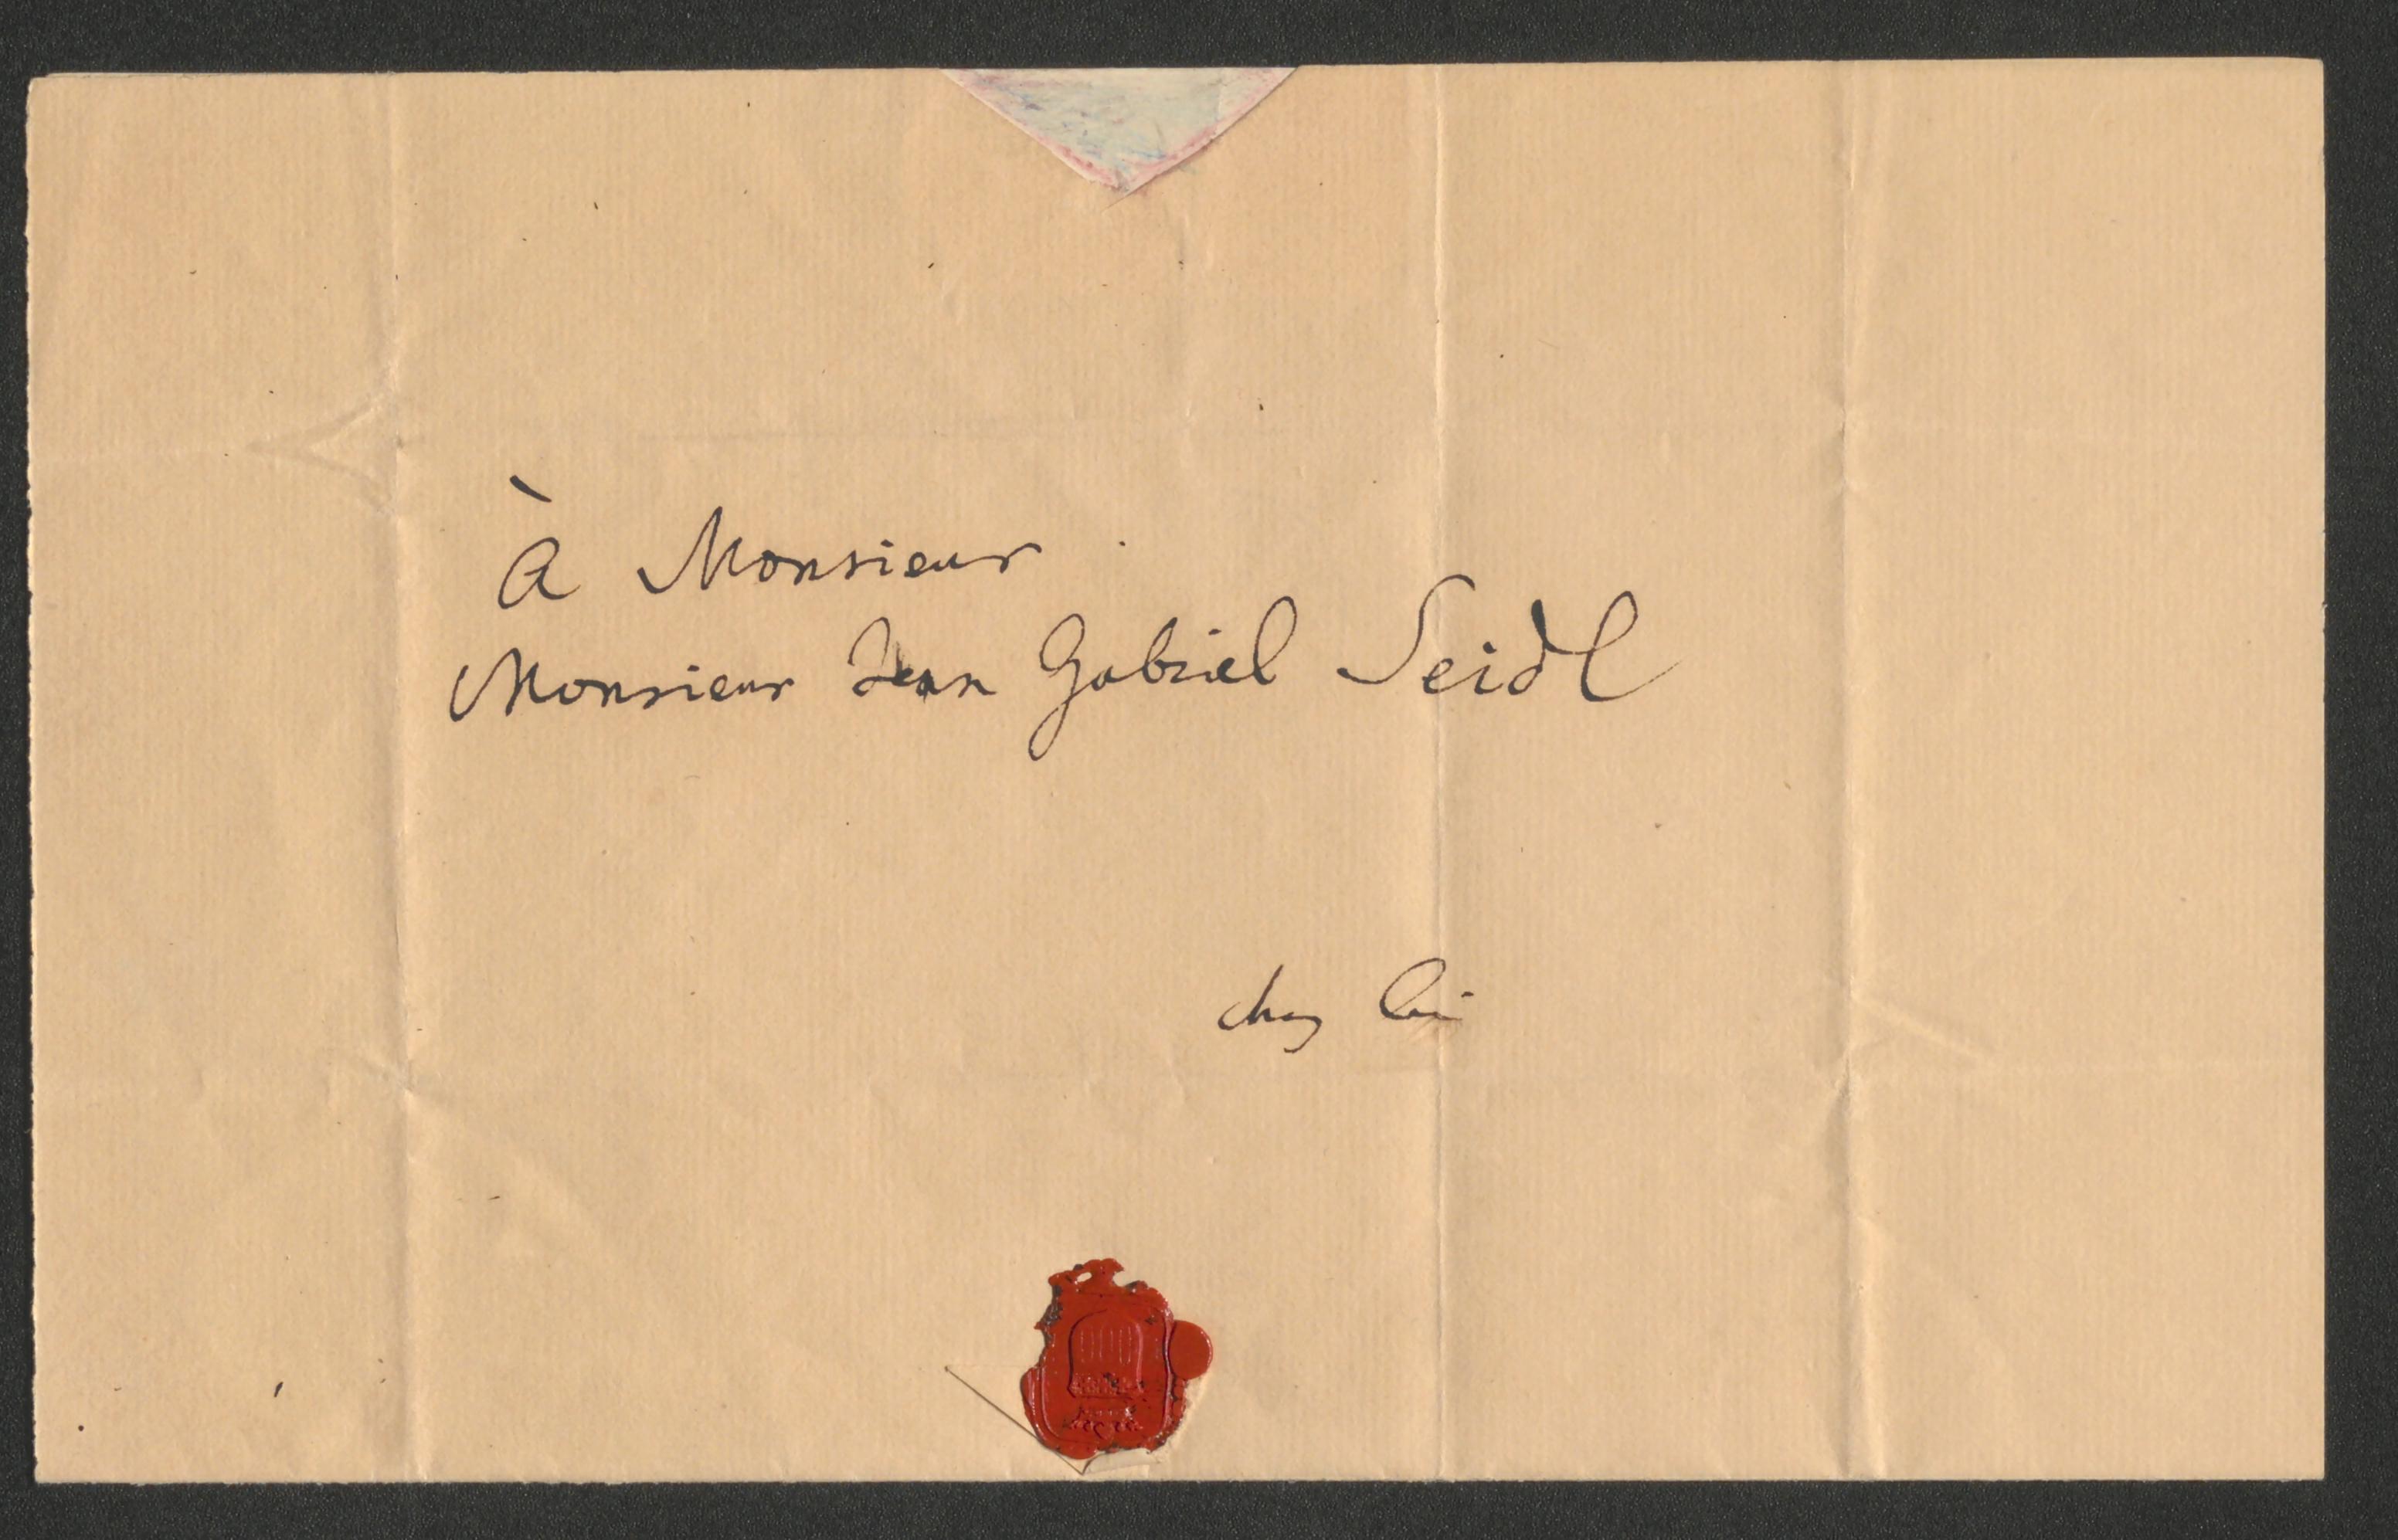 À Monsieur
Monsieur Jean Gabriel Seidl
chez lui